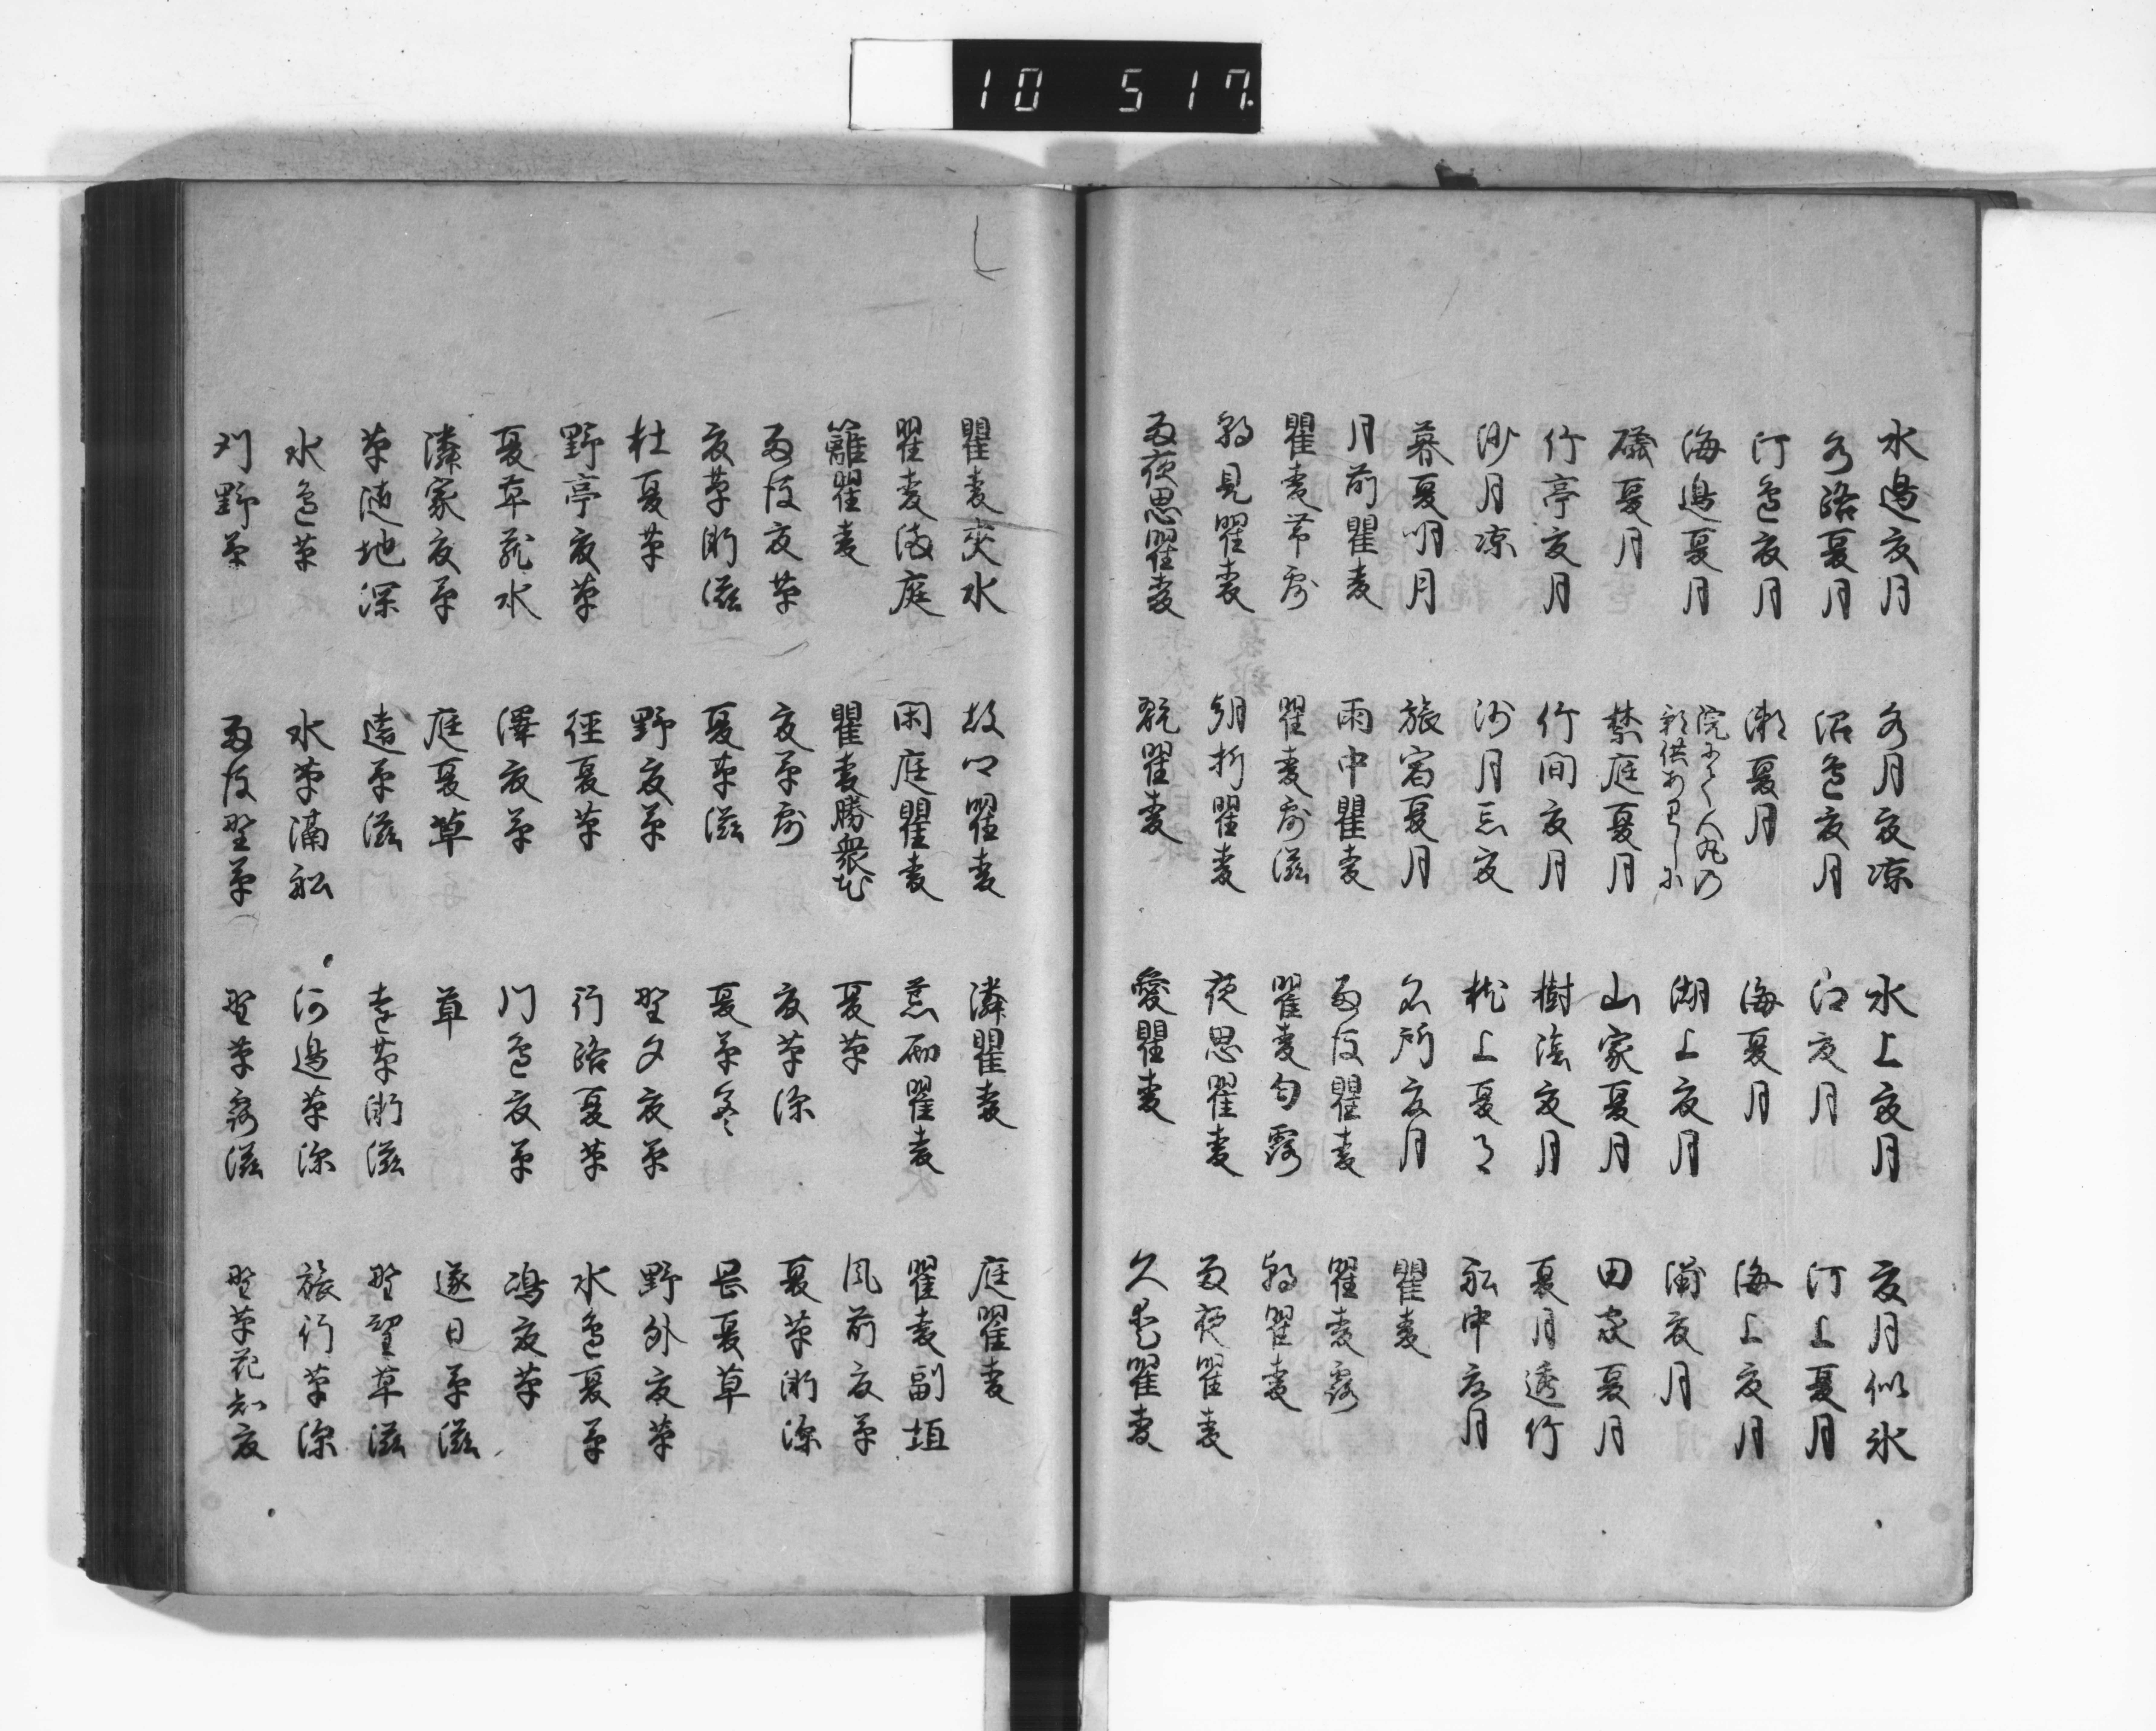 水邊夏月 水月夏凉 水上夏月 夏月似氷
水路夏月 沼邊夏月 江夏月 汀上夏月
汀邊夏月 瀬夏月 海夏月 海上夏月
海邊夏月 院にて人丸の影供ありしに 湖上夏月 浦夏月
礒夏月 禁庭夏月 山家夏月 田家夏月
竹亭夏月 竹間夏月 樹陰夏月 夏月透竹
沙月凉 沙月忘夏 枕上夏月 船中夏月
暮夏明月 旅宿夏月 名所夏月 瞿麦
月前瞿麦 雨中瞿麦 雨後瞿麦 瞿麦露
瞿麦帯露 瞿麦露滋 瞿麦匂露 朝瞿麦
朝見瞿麦 朝折瞿麦 夜思瞿麦 雨夜瞿麦
雨夜思瞿麦 翫瞿麦 愛瞿麦 久愛瞿麦
瞿麦夾水 故郷瞿麦 隣瞿麦 庭瞿麦
瞿麦満庭 閑庭瞿麦 荒砌瞿麦 瞿麦副垣
籬瞿麦 瞿麦勝衆花 夏草 風前夏草
雨後夏草 夏草露 夏草深 夏草漸深
夏草漸滋 夏草滋 夏草 夏草
杜夏草 野夏草 野夕夏草 野外夏草
野亭夏草 径夏草 行路夏草 水邊夏草
夏草蔵水 澤夏草 門邊夏草 夏草
隣家夏草 庭夏草 草 逐日草滋
草随地深 遠草滋 遠草漸滋 野望草滋
水邊草 水草満船 河邊草深 旅行草深
刈野草 雨後野草 野草露滋 野草花知夏
10 517